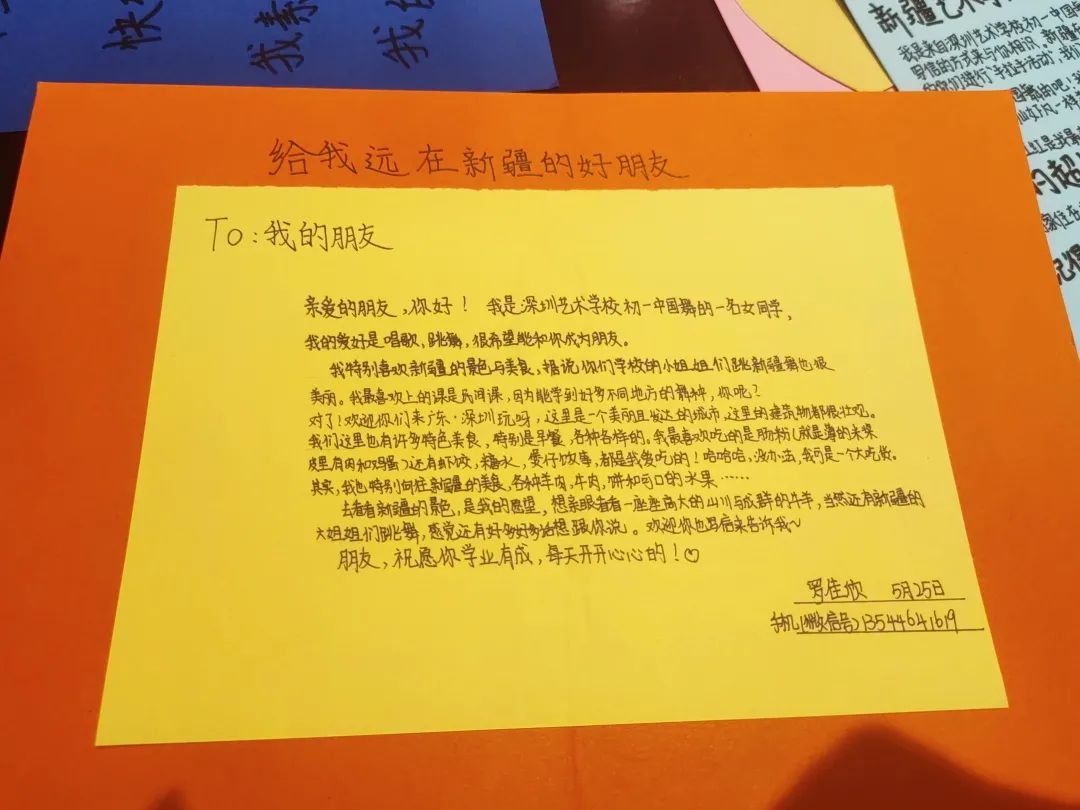 快
我素
我的
新疆艺术
我是来自深圳艺术学校初一中国舞
写信的方式来与你相识。新疆
给我远在新疆的好朋友
To:我的朋友
亲爱的朋友,你好! 我是深圳艺术学校初一中国舞的一名女同学,
我的爱好是唱歌,跳舞,很希望能和你成为朋友。
我特别喜欢新疆的景色与美食,据说你们学校的小姐姐们跳新疆舞也很
美丽。我最喜欢上的课是民间课,因为能学到好多不同地方的舞种,你呢?
对了!欢迎你们来广东·深圳玩呀,这里是一个美丽且发达的城市,这里的建筑物都很壮观。
我们这里也有许多特色美食,特别是早餐,各种各样的。我最喜欢吃的是肠粉(就是薄的米浆
皮里有肉和鸡蛋)还有虾饺,糖水,煲仔饭等,都是我爱吃的!哈哈哈,没办法,我可是一个大吃货。
其实,我也特别向往新疆的美食,各种羊肉,牛肉,饼和可口的水果……
去看看新疆的景色,是我的愿望,想亲眼看看一座座高大的山川与成群的牛羊,当然还有新疆的
大姐姐们跳舞,感觉还有好多好多话想跟你说。欢迎你也写信来告诉我~
朋友,祝愿你学业有成,每天开开心心的!♡
罗佳欣 5月25日
手机(微信号)13544641619